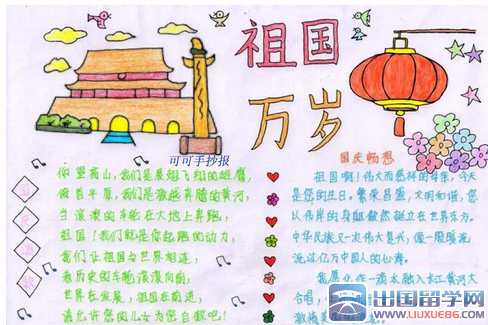 祖国
万岁
可可手抄报
你望高山,我们是展翅飞翔的雄鹰,
俯首平原,我们是激越奔腾的黄河,
当滚滚的车轮在大地上奔跑,
祖国!我们就是你起跑的动力,
我们让祖国与世界相连,
看历史的车轮滚滚向前,
世界在发展,祖国在前进,
请允许您的儿女为您自傲吧!
国庆畅想
祖国啊!伟大而慈祥的母亲,今天
是您的生日。繁荣昌盛,文明和谐,您
以伟岸的身躯傲然挺立在世界东方。
中华民族又一次伟大复兴,像一股暖流
流过亿万中国人的心海。
我愿化作一滴水融入长江黄河大
合唱,
激情
出国留学网
WWW.LIUXUE86.COM